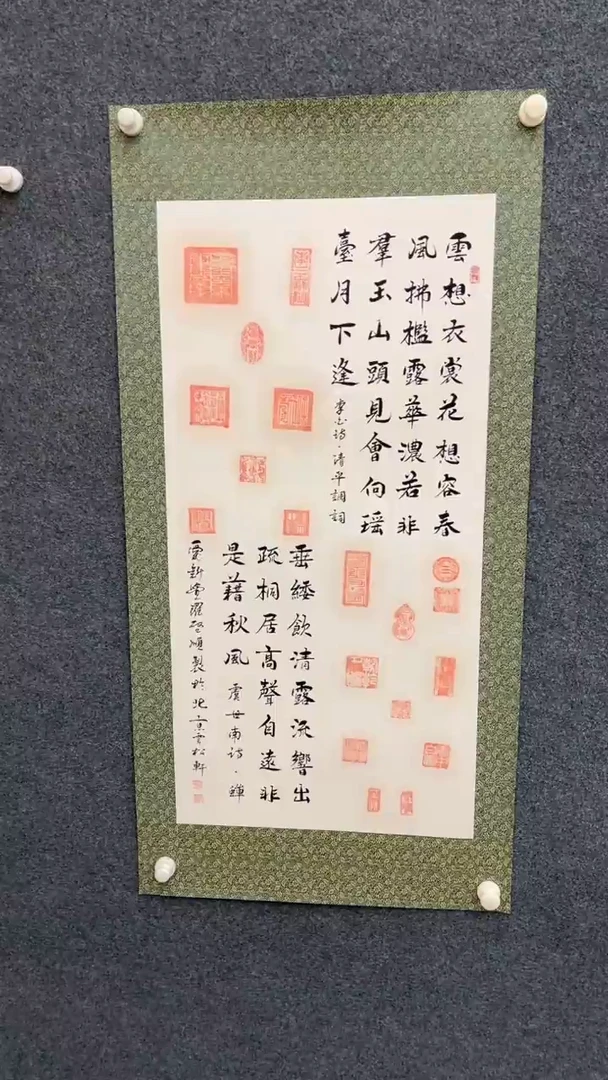 雲想衣裳花想容春
風拂檻露華濃若非
羣玉山頭見會向瑤
臺月下逢 李白詩·清平調詞
垂緌飲清露流響出
疏桐居高聲自遠非
是藉秋風 虞世南詩·蟬
愛新覺羅 製於北京雲松軒